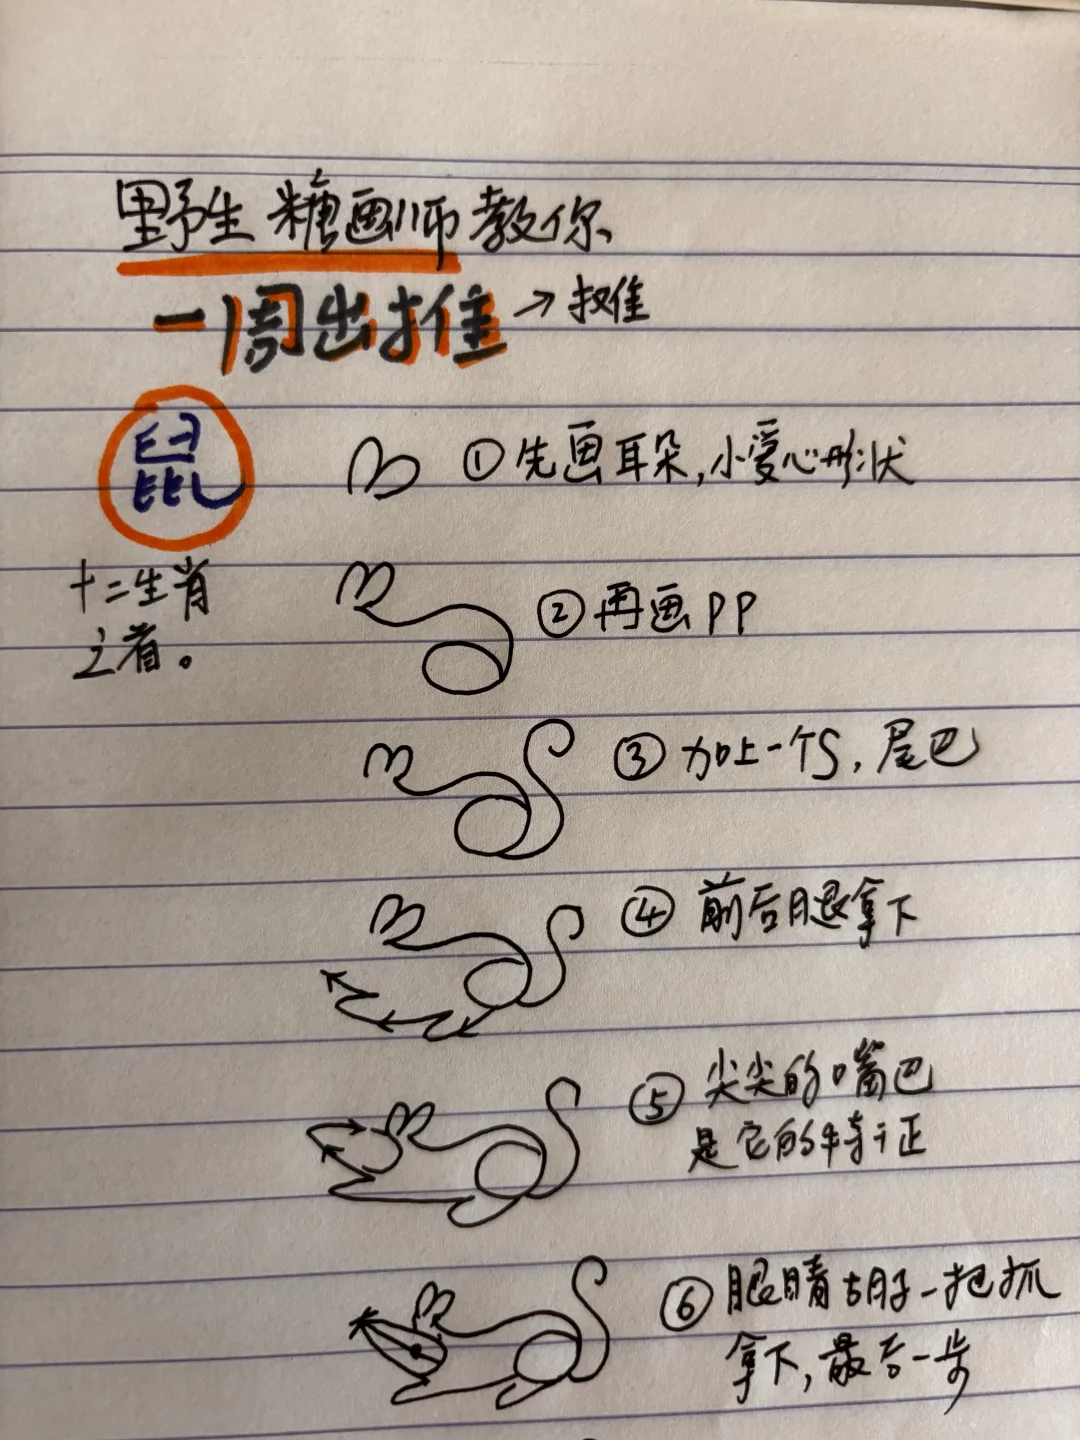 野生糖画师教你
一周出摊→摊
鼠
十二生肖
之首。
①先画耳朵,小爱心形状
②再画PP
③加上一个S,尾巴
④前后腿拿下
⑤尖尖的嘴巴
是它的特征
⑥眼睛胡子一把抓
拿下,最后一步